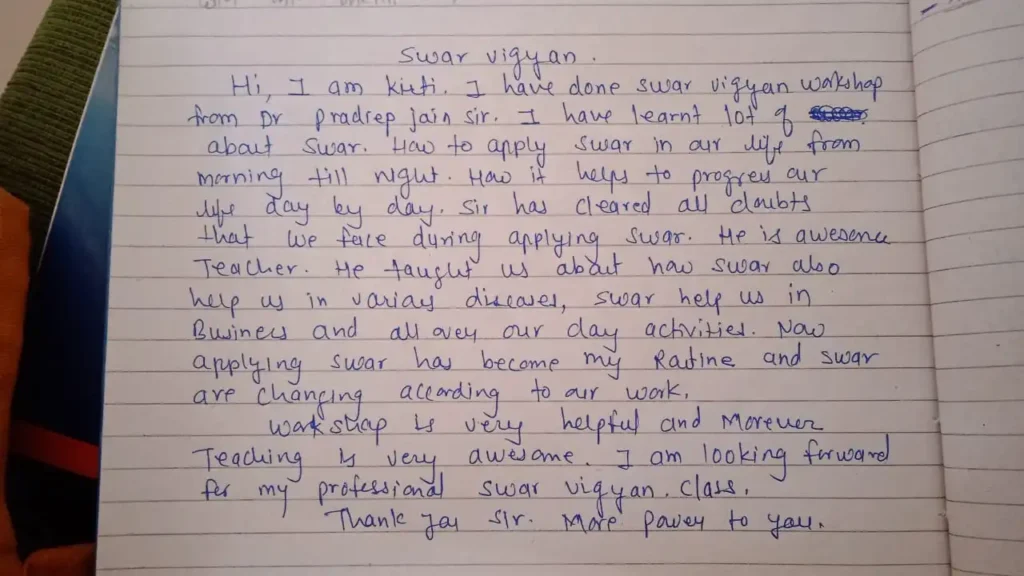 Swar vigyan.
Hi, I am kirti. I have done swar vigyan workshop
from Dr Pradeep jain sir. I have learnt lot of
about swar. How to apply swar in our life from
morning till night. How it helps to progress our
life day by day. Sir has cleared all doubts
that we face during applying swar. He is awesome
Teacher. He taught us about how swar also
help us in various diseases, swar help us in
Business and all over our day activities. Now
applying swar has become my Routine and swar
are changing according to our work.
Workshop is very helpful and Moreover
Teaching is very awesome. I am looking forward
for my professional swar vigyan. class.
Thank you sir. More power to you.